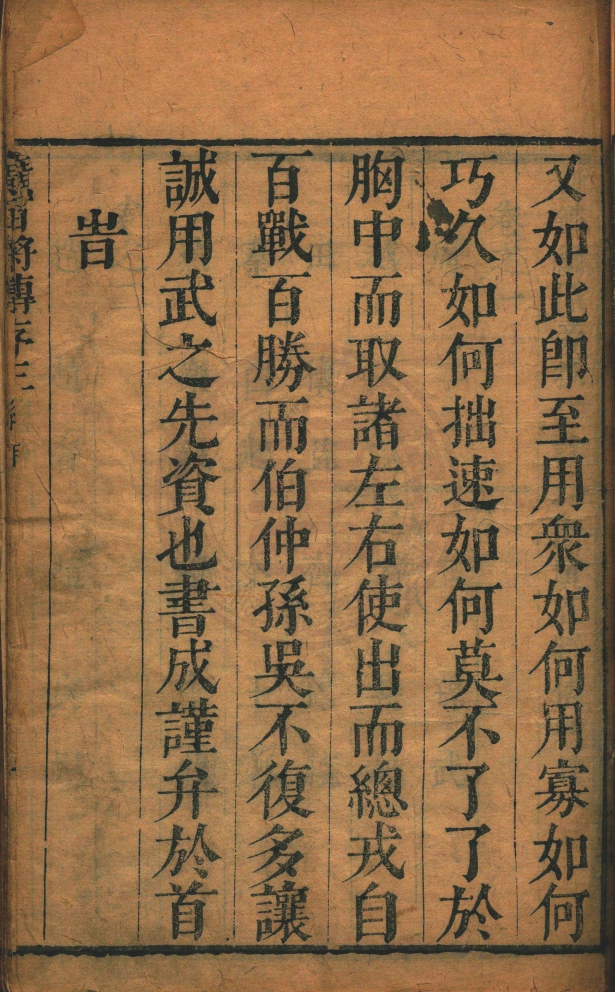 又如此卽至用衆如何用寡如何
巧久如何拙速如何莫不了了於
胸中而取諸左右使出而總戎自
百戰百勝而伯仲孫吳不復多讓
誠用武之先資也書成謹弁於首
旹
將傳序三